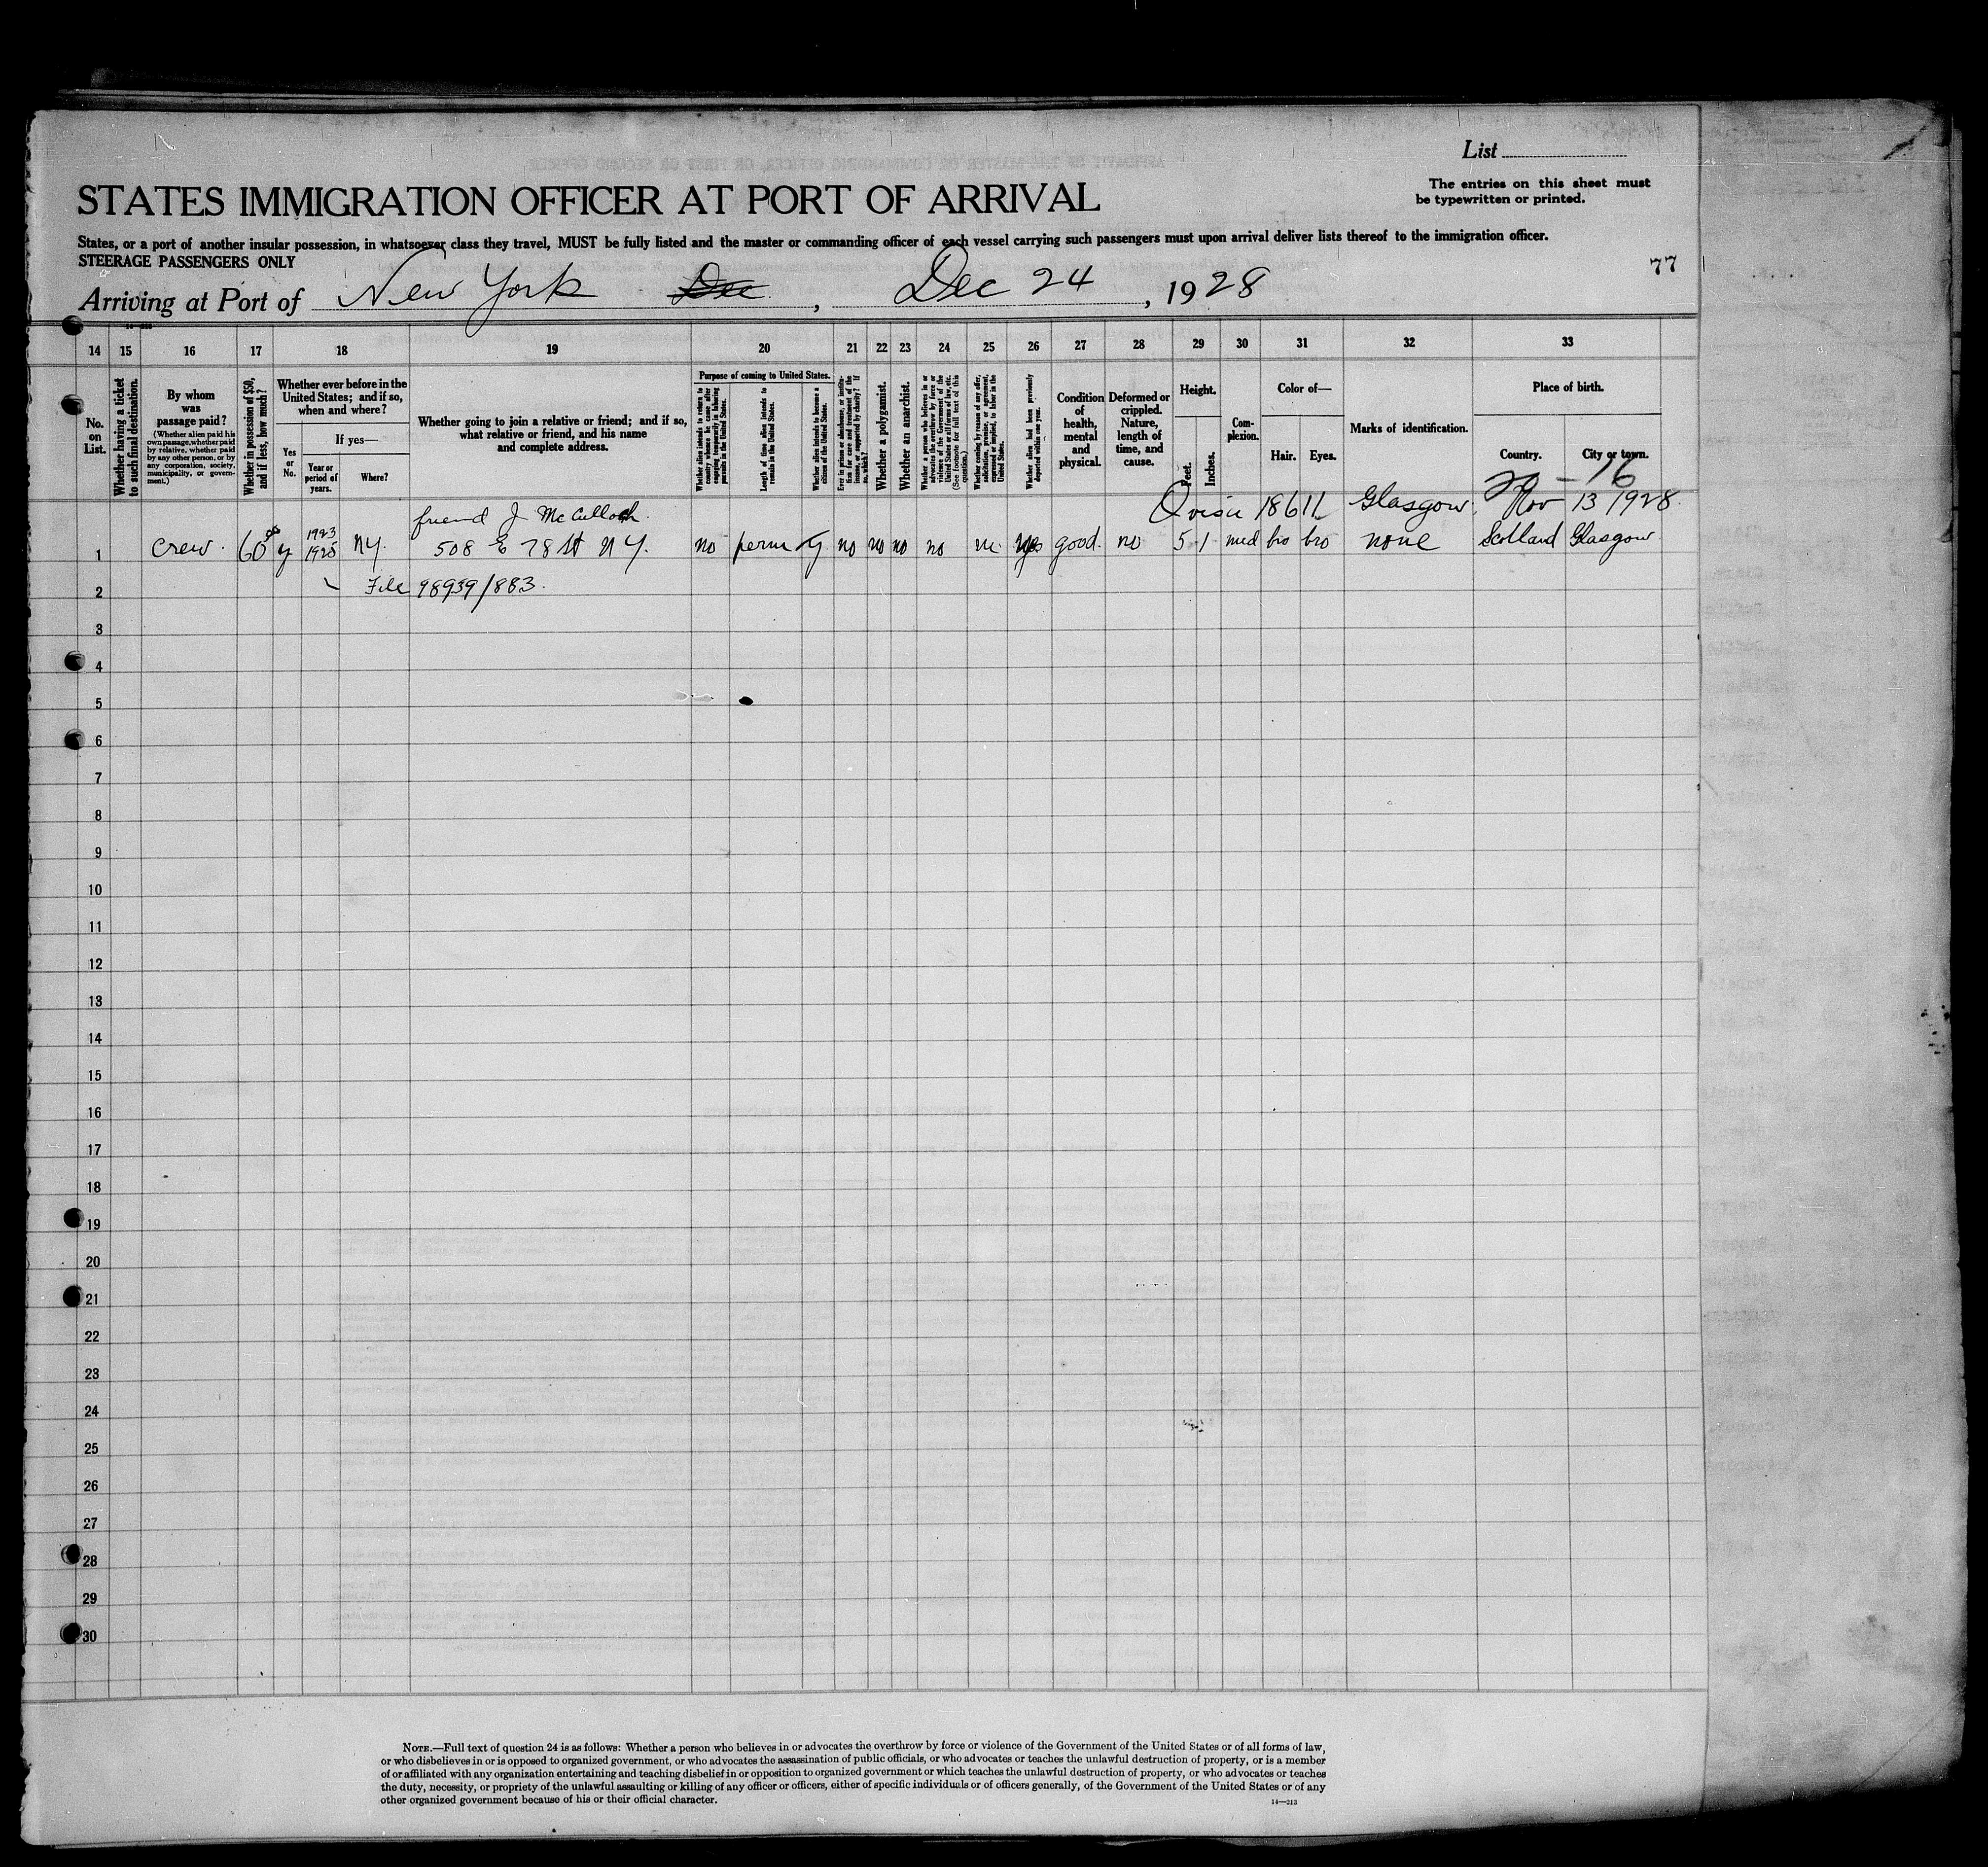 List
The entries on this sheet must
be typewritten or printed.
STATES IMMIGRATION OFFICER AT PORT OF ARRIVAL
States, or a port of another insular possession, in whatsoever class they travel, MUST be fully listed and the master or commanding officer of each vessel carrying such passengers must upon arrival deliver lists thereof to the immigration officer.
STEERAGE PASSENGERS ONLY
77
Arriving at Port of New York Dec , Dec 24 , 1928
14 15 16 17 18 19 20 21 22 23 24 25 26 27 28 29 30 31 32 33
No. on List.
Whether having a ticket to such final destination.
By whom was passage paid?
(Whether alien paid his own passage, whether paid by relative, whether paid by any other person, or by any corporation, society, municipality, or government.)
Whether in possession of $50, and if less, how much?
Whether ever before in the United States; and if so, when and where?
Yes or No.
If yes—
Year or period of years.
Where?
Whether going to join a relative or friend; and if so, what relative or friend, and his name and complete address.
Purpose of coming to United States.
Whether alien intends to return to country whence he came after engaging temporarily in laboring pursuits in the United States.
Length of time alien intends to remain in the United States.
Whether alien intends to become a citizen of the United States.
Ever in prison or almshouse, or institution for care and treatment of the insane, or supported by charity? If so, which?
Whether a polygamist.
Whether an anarchist.
Whether a person who believes in or advocates the overthrow by force or violence of the Government of the United States or all forms of law, etc. (See footnote for full text of this question.)
Whether coming by reason of any offer, solicitation, promise, or agreement, expressed or implied, to labor in the United States.
Whether alien had been previously deported within one year.
Condition of health, mental and physical.
Deformed or crippled. Nature, length of time, and cause.
Height.
Feet. Inches.
Complexion.
Color of—
Hair. Eyes.
Marks of identification.
Place of birth.
Country. City or town.
20 - 16
friend J McCulloch Q visa 18611 Glasgow Nov 13 1928
1 crew. 60 y 1923 1928 NY. 508 E 78 St N Y. no perm y no no no no no yes good. no 5 1 med bro bro none Scotland Glasgow
2 File 98939/883.
3
4
5
6
7
8
9
10
11
12
13
14
15
16
17
18
19
20
21
22
23
24
25
26
27
28
29
30
NOTE.—Full text of question 24 is as follows: Whether a person who believes in or advocates the overthrow by force or violence of the Government of the United States or of all forms of law,
or who disbelieves in or is opposed to organized government, or who advocates the assassination of public officials, or who advocates or teaches the unlawful destruction of property, or is a member
of or affiliated with any organization entertaining and teaching disbelief in or opposition to organized government or which teaches the unlawful destruction of property, or who advocates or teaches
the duty, necessity, or propriety of the unlawful assaulting or killing of any officer or officers, either of specific individuals or of officers generally, of the Government of the United States or of any
other organized government because of his or their official character.
14—213